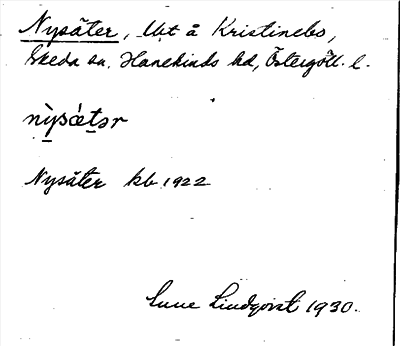 Nysäter, Utt å Kristinebs,
Skeda sn, Hanekinds hd, Östergötl. l.
nỳsǽtər
Nysäter kb 1922
Sune Lindqvist 1930.